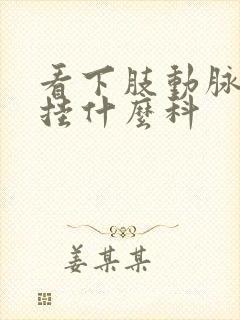 看下肢動脉
挂什麼科
姜某某